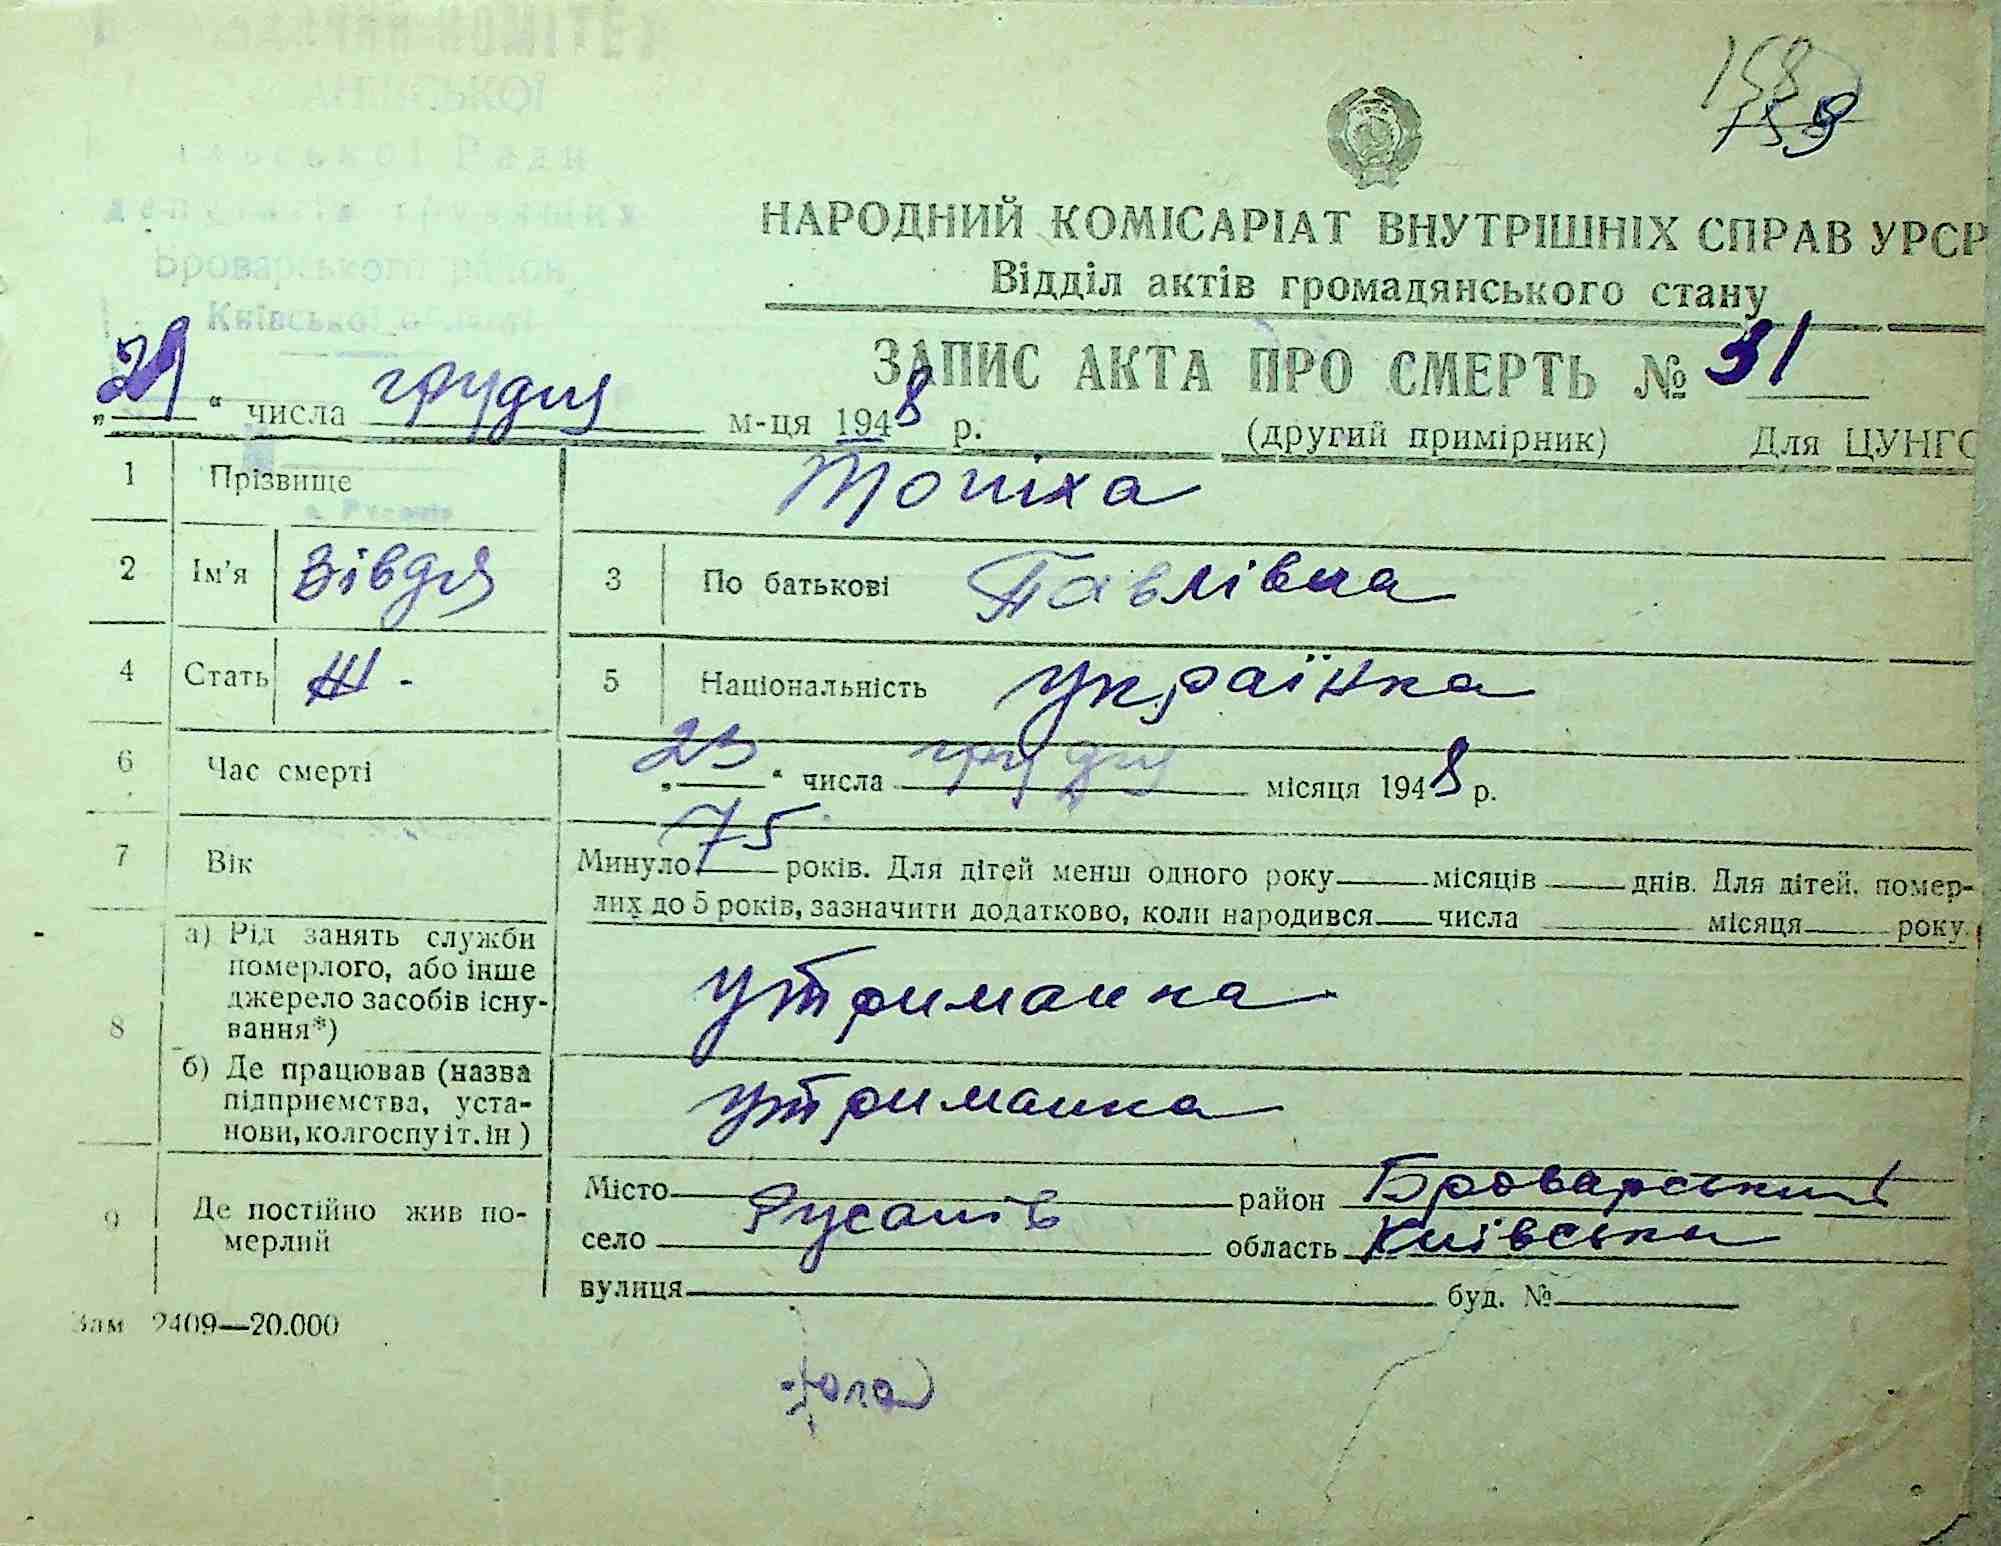 158
159
НАРОДНИЙ КОМІСАРІАТ ВНУТРІШНІХ СПРАВ УРСР
Відділ актів громадянського стану
ЗАПИС АКТА ПРО СМЕРТЬ № 31
„29“ числа грудня м-ця 1948 р. (другий примірник) Для ЦУНГО
1 Прізвище Топіха
2 Ім'я Вівдя 3 По батькові Павлівна
4 Стать Ж - 5 Національність українка
6 Час смерті „23“ числа грудня місяця 1948 р.
7 Вік Минуло 75 років. Для дітей менш одного року місяців днів. Для дітей, помер-
лих до 5 років, зазначити додатково, коли народився числа місяця року
8 а) Рід занять служби
померлого, або інше
джерело засобів існу-
вання*) утриманка
б) Де працював (назва
підприємства, уста-
нови, колгоспу і т. ін) утриманка
9 Де постійно жив по-
мерлий
Місто район Броварський
село Русанів область Київська
вулиця буд. №
Зам 2409—20.000